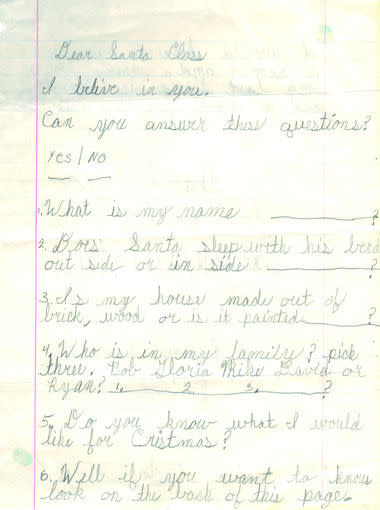 Dear Santa Class
I belive in you.
Can you answer these questions?
Yes / No
1. What is my name ________?
2. Dors Santa sleep with his berd
out side or in side ________?
3. Is my house made out of
brick, wood or is it painted ________?
4. Who is in my family? pick
three. Rob Gloria Mike David or
Ryan? 1. ____ 2. ____ 3. ____?
5. Do you know what I would
like for Cristmas?
6. Well if you want to know
look on the back of this page.